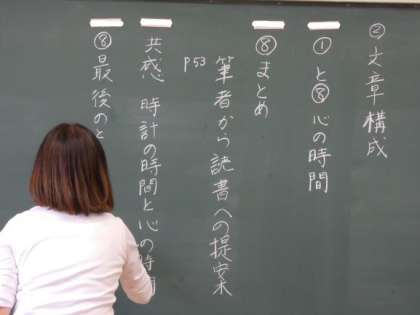 ② 文章構成
①と⑧ 心の時間
⑧まとめ
筆者から読書への提案
P53
共感 時計の時間と心の時間
⑧最後のと